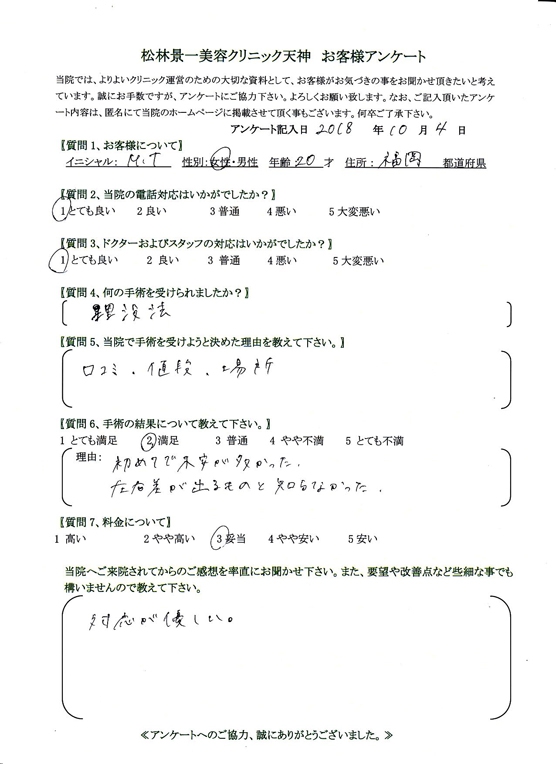 松林景一美容クリニック天神　お客様アンケート
当院では、よりよいクリニック運営のための大切な資料として、お客様がお気づきの事をお聞かせ頂きたいと考え
ています。誠にお手数ですが、アンケートにご協力下さい。よろしくお願い致します。なお、ご記入頂いたアンケ
ート内容は、匿名にて当院のホームページに掲載させて頂く事もございます。何卒ご了承下さい。
アンケート記入日 2018 年 10 月 4 日
【質問1、お客様について】
イニシャル: M.T 性別:女性・男性 年齢 20 才 住所: 福岡 都道府県
【質問2、当院の電話対応はいかがでしたか?】
1 とても良い 2 良い 3 普通 4 悪い 5 大変悪い
【質問3、ドクターおよびスタッフの対応はいかがでしたか?】
1 とても良い 2 良い 3 普通 4 悪い 5 大変悪い
【質問4、何の手術を受けられましたか?】
埋没法
【質問5、当院で手術を受けようと決めた理由を教えて下さい。】
口コミ、値段、場所
【質問6、手術の結果について教えて下さい。】
1 とても満足 2 満足 3 普通 4 やや不満 5 とても不満
理由: 初めてで不安が多かった.
左右差が出るものと知らなかった.
【質問7、料金について】
1 高い 2 やや高い 3 妥当 4 やや安い 5 安い
当院へご来院されてからのご感想を率直にお聞かせ下さい。また、要望や改善点など些細な事でも
構いませんので教えて下さい。
対応が優しい。
≪アンケートへのご協力、誠にありがとうございました。≫